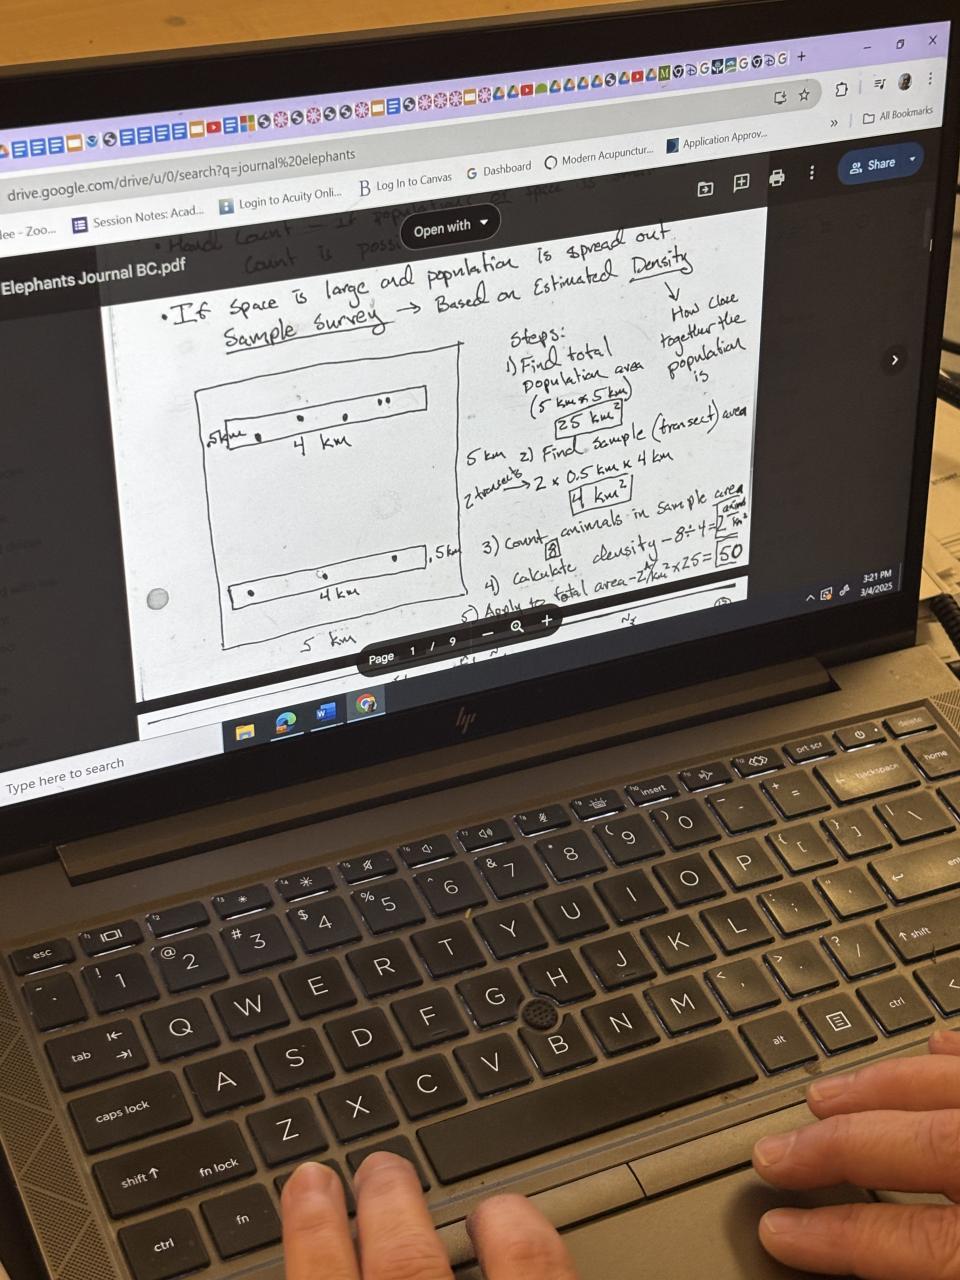 drive.google.com/drive/u/0/search?q=journal%20elephants
All Bookmarks
lee - Zoo...
Session Notes: Acad...
Login to Acuity Onli...
B Log In to Canvas
Dashboard
Modern Acupunctur...
Application Approv...
Elephants Journal BC.pdf
Open with
Share
• Hand Count - If population
Count is possi
• If space is large and population is spread out
Sample Survey → Based on Estimated Density
How close
together the
population
is
Steps:
1) Find total
population area
(5 km x 5 km)
25 km²
2) Find sample (transect) area
2 transects → 2 x 0.5 km x 4 km
4 km²
3) Count animals in sample area
8
4) Calculate density - 8÷4 = 2
5) Apply to total area - 2/km² x 25 = 50
.5km
4 km
5 km
.5km
4 km
5 km
Page 1 / 9 − +
3:21 PM
3/4/2025
Type here to search
hp
esc
delete
prt scr
insert
home
backspace
! 1 @ 2 # 3 $ 4 % 5 ^ 6 & 7 * 8 ( 9 ) 0 _ - + =
tab Q W E R T Y U I O P { [ } ] | \
caps lock A S D F G H J K L : ; " ' ent
shift ↑ fn lock Z X C V B N M < , > . ? / ↑ shift
ctrl fn alt ctrl <